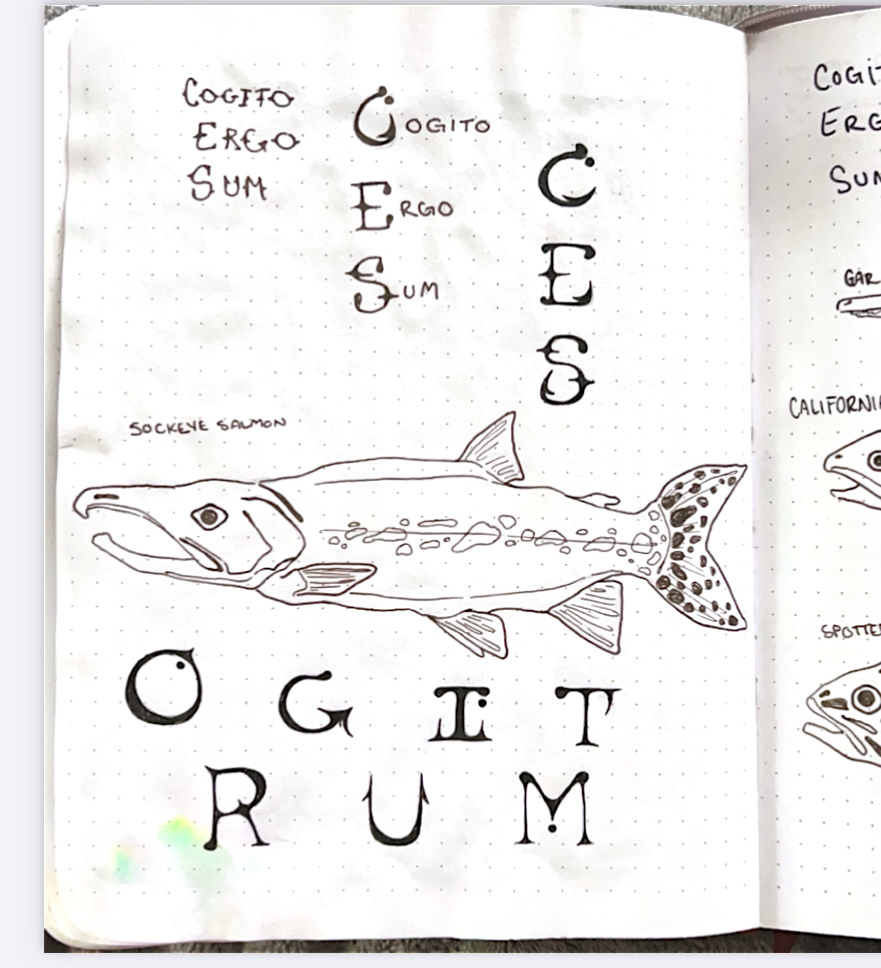 COGITO
ERGO
SUM
COGITO
ERGO
SUM
C
E
S
SOCKEYE SALMON
O G I T
R U M
COGIT
ERG
SUM
GAR
CALIFORNIA
SPOTTE